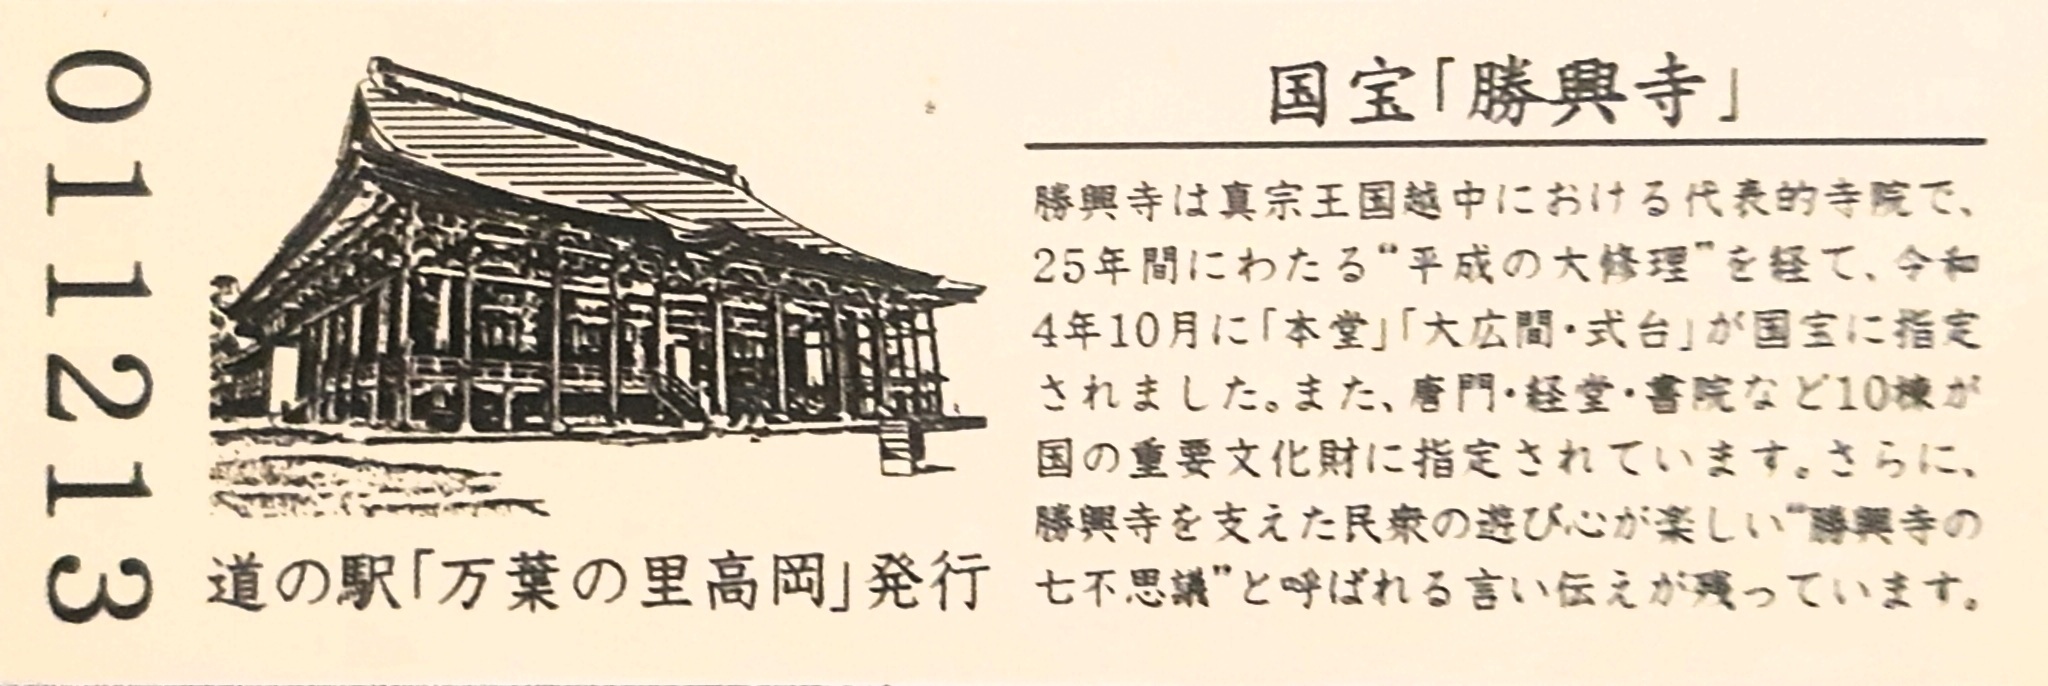 011213
道の駅「万葉の里高岡」発行
国宝「勝興寺」
勝興寺は真宗王国越中における代表的寺院で、
25年間にわたる“平成の大修理”を経て、令和
4年10月に「本堂」「大広間・式台」が国宝に指定
されました。また、唐門・経堂・書院など10棟が
国の重要文化財に指定されています。さらに、
勝興寺を支えた民衆の遊び心が楽しい“勝興寺の
七不思議”と呼ばれる言い伝えが残っています。